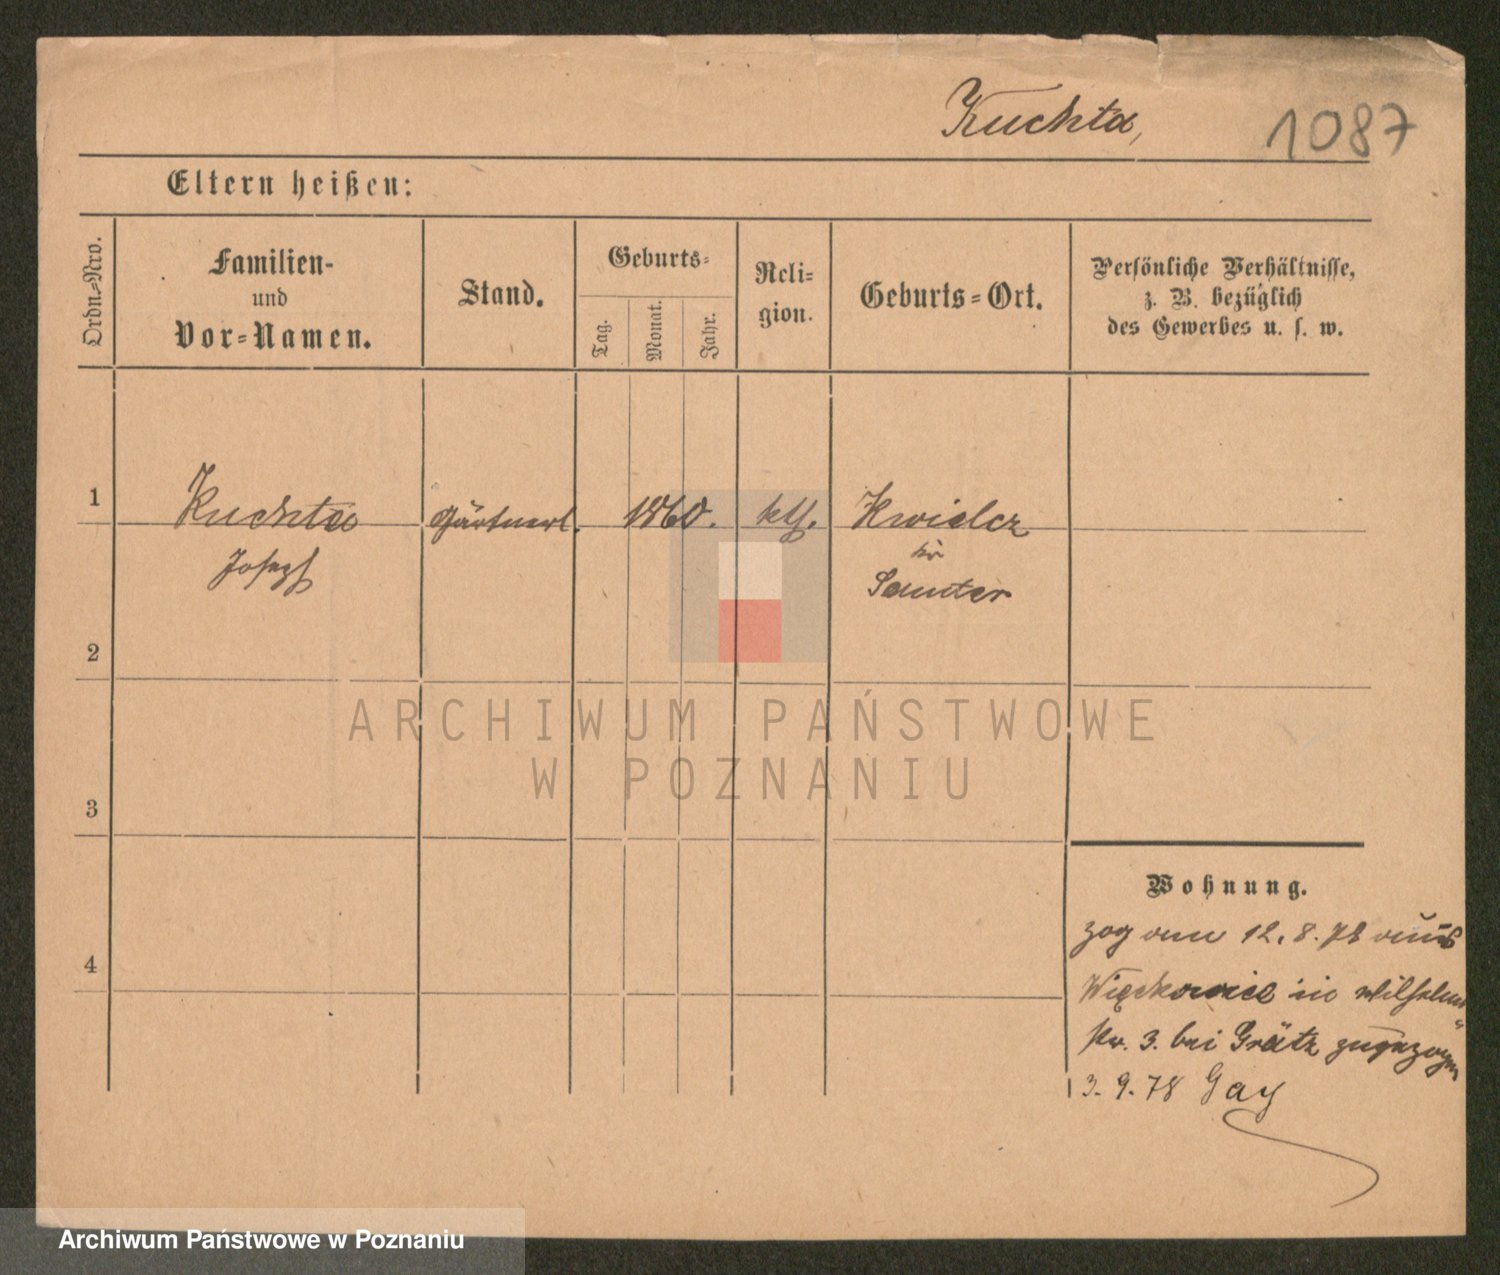 Kuchta,
1087
Eltern heißen:
Ordn.-Nro.
Familien-
und
Vor-Namen.
Stand.
Geburts-
Tag.
Monat.
Jahr.
Reli-
gion.
Geburts-Ort.
Persönliche Verhältnisse,
z. B. bezüglich
des Gewerbes u. s. w.
1
Kuchta
Josef
Gärtnerl.
1860.
kth.
Kwielcz
kr
Samter
2
3
4
ARCHIWUM PAŃSTWOWE
W POZNANIU
Wohnung.
zog am 12. 8. 78 aus
Więckowice in Wilhelm
str. 3. bei Grätz zugezogen
3. 9. 78 Gay
Archiwum Państwowe w Poznaniu